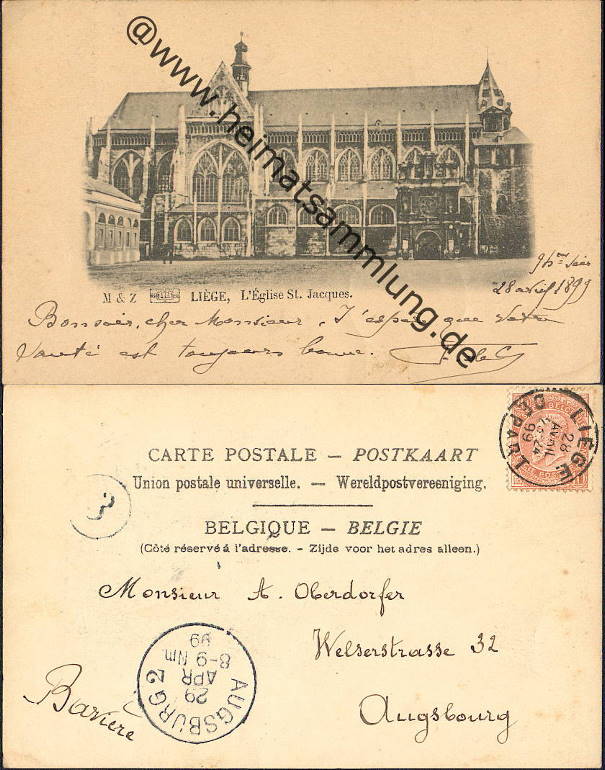 @www.heimatsammlung.de
M & Z LIÈGE, L'Église St. Jacques.
28 avril 1899
Bonsoir, cher Monsieur, J'espère que votre
santé est toujours bonne.
CARTE POSTALE – POSTKAART
Union postale universelle. — Wereldpostvereeniging.
BELGIQUE – BELGIE
(Côté réservé à l'adresse. - Zijde voor het adres alleen.)
LIÈGE
28
AVRIL
99
DÉPART
3
Monsieur A. Oberdorfer
Welserstrasse 32
Augsbourg
Bavière
AUGSBURG 2
29
APR
8-9 Nm.
99